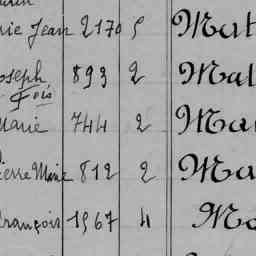 rie Jean 2170 5 Mat
oseph 893 2 Mal
Fois
Marie 744 2 Ma
ierre Marie 812 2 Ma
rançois 1567 4 Ma